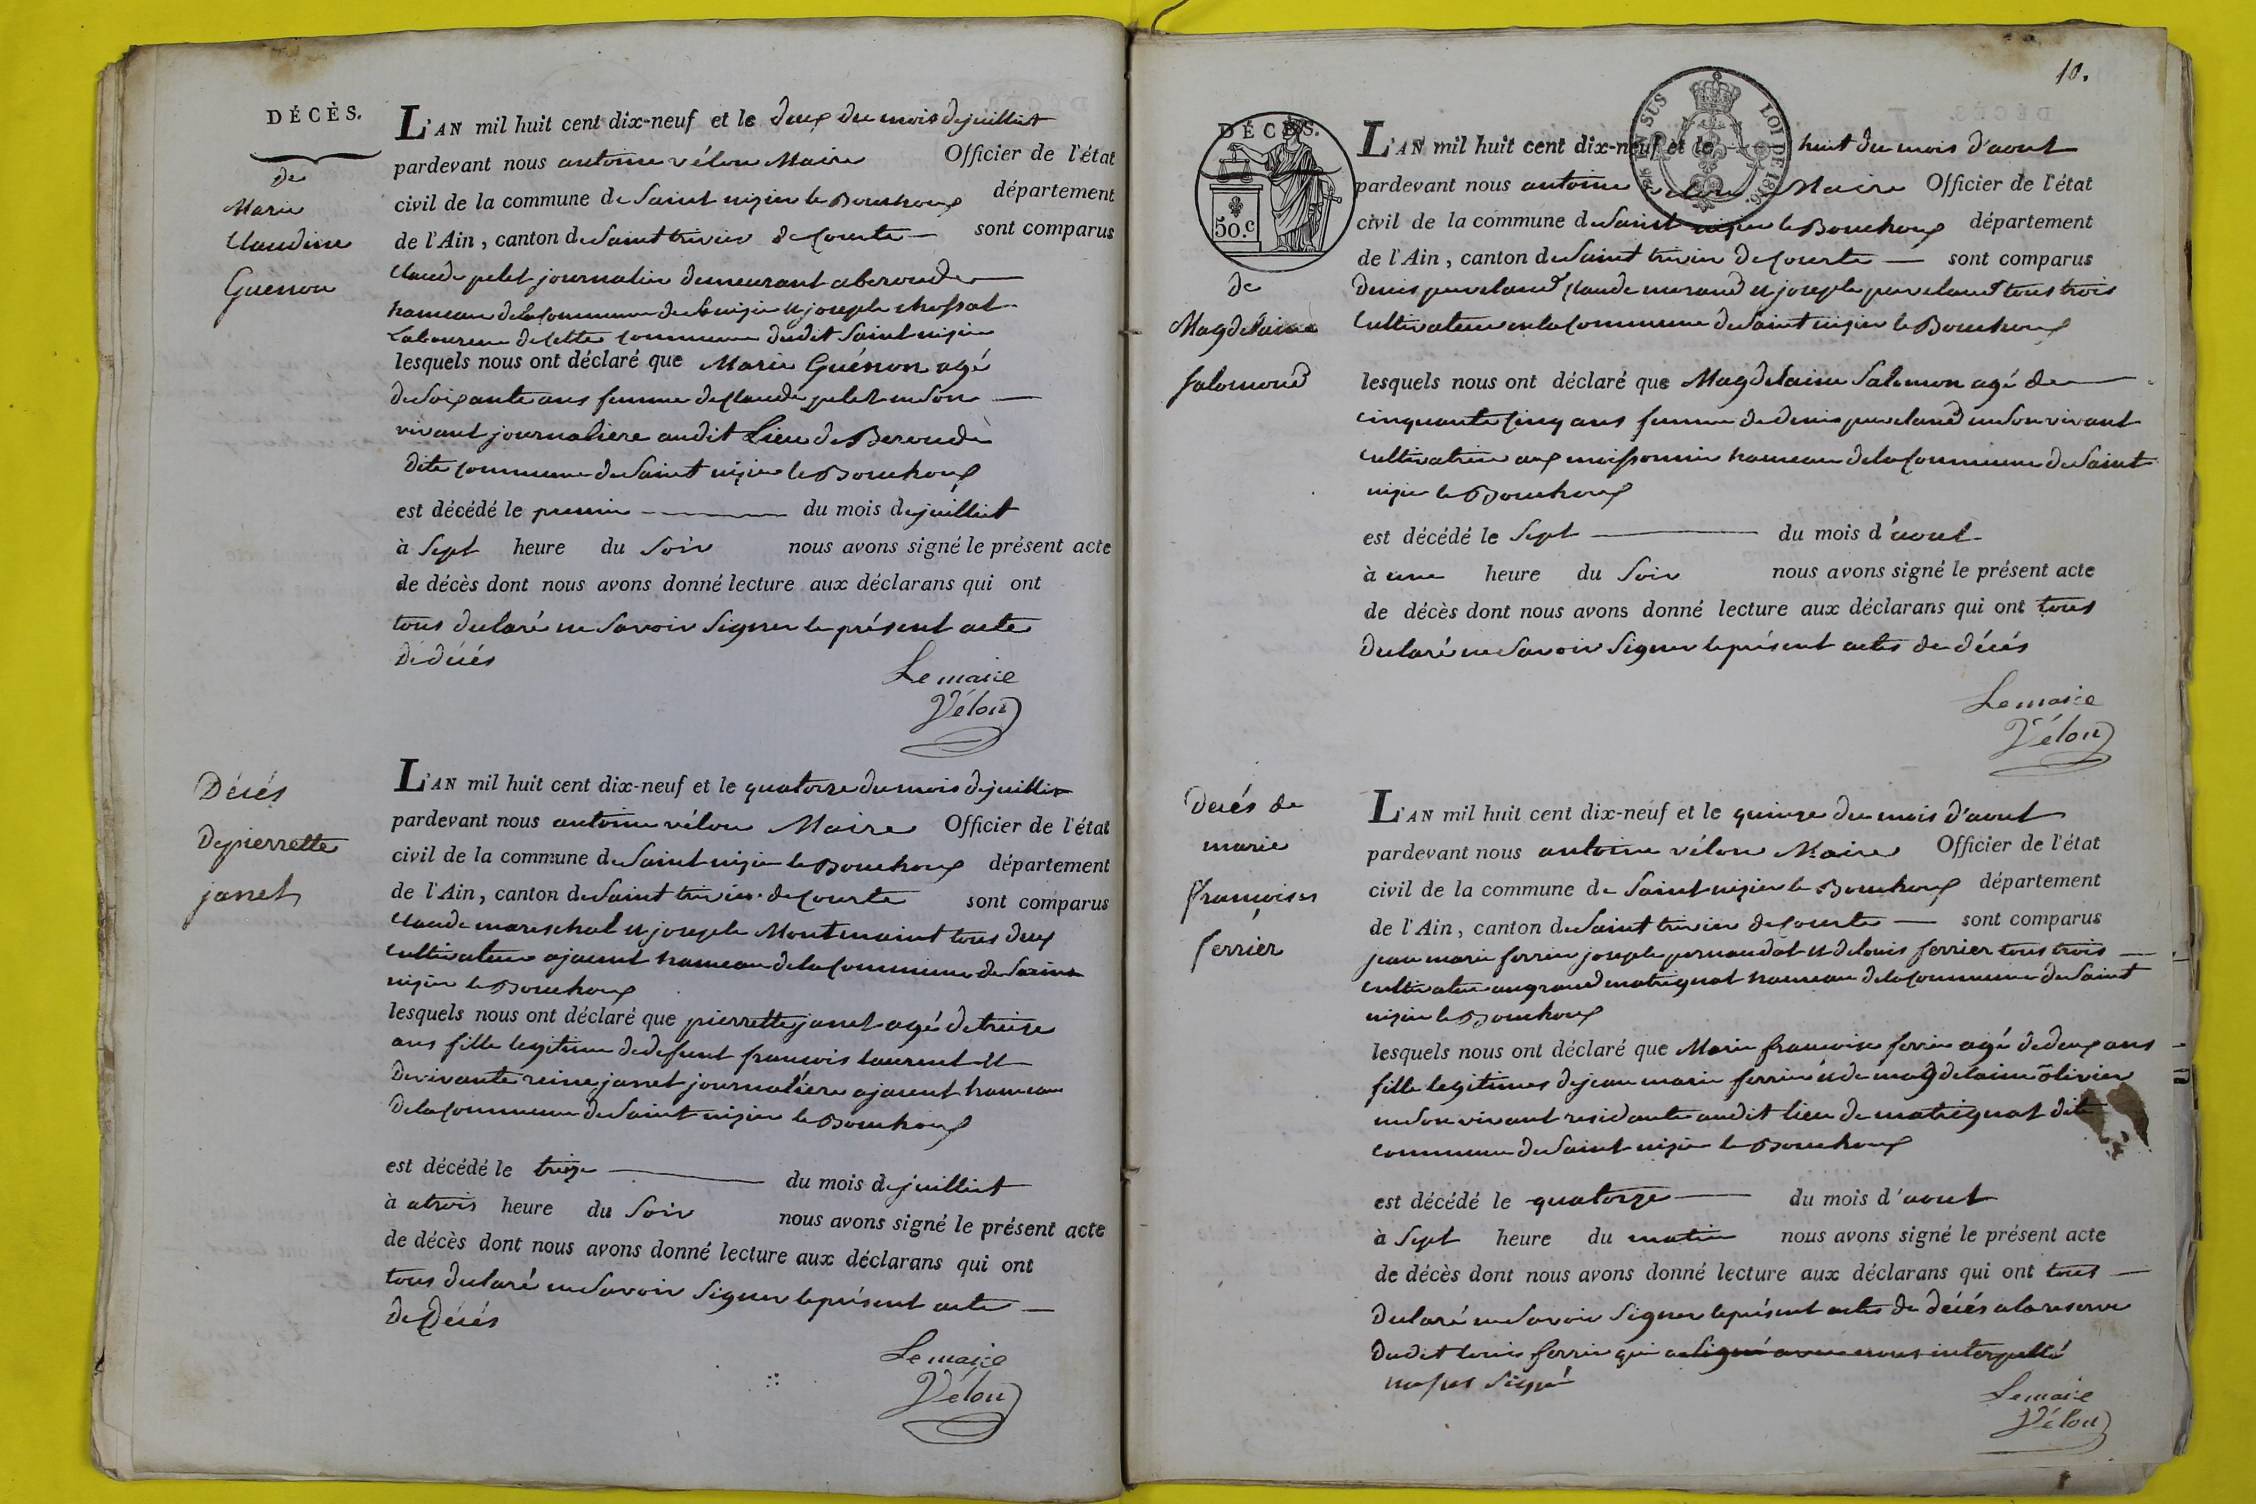 DÉCÈS.
de
Marie
Claudine
Guénon
L'AN mil huit cent dix-neuf et le deux du mois de juilliet
pardevant nous antoine vélon Maire Officier de l'état
civil de la commune de Saint nizier le Bouchoux département
de l'Ain, canton de Saint trivier de Courte sont comparus
Claude pelet journalier demeurant a beroude
hameau de la Commune de St nizier et joseph chossat
Laboureur de Cette Commune dudit Saint nizier
lesquels nous ont déclaré que Marie Guénon agé
de Soixante ans femme de Claude pelet en Son
vivant journaliere audit Lieu de Beroude
dite Commune de Saint nizier le Bouchoux
est décédé le premier du mois de juilliet
à Sept heure du Soir nous avons signé le présent acte
de décès dont nous avons donné lecture aux déclarans qui ont
tous declaré ne Savoir Signer le présent acte
de décés
Le maire
Vélon
Décés
de pierrette
janet
L'AN mil huit cent dix-neuf et le quatorze du mois de juilliet
pardevant nous antoine vélon Maire Officier de l'état
civil de la commune de Saint nizier le Bouchoux département
de l'Ain, canton de Saint trivier de Courte sont comparus
Claude mareschal et joseph Montmaint tous deux
Cultivateur a jacent hameau de la Commune de Saint
nizier le Bouchoux
lesquels nous ont déclaré que pierrette janet agé de treize
ans fille legitime de defunt francois laurent et
de vivante reine janet journaliere a jacent hameau
de la Commune de Saint nizier le Bouchoux
est décédé le treize du mois de juilliet
à atrois heure du Soir nous avons signé le présent acte
de décès dont nous avons donné lecture aux déclarans qui ont
tous declaré ne Savoir Signer le présent acte
de Décés
Le maire
Vélon
10.
DÉCÈS.
50.c
EN SUS
LOI DE 1816.
de
Magdelaine
Salomond
L'AN mil huit cent dix-neuf et le huit du mois d'aout
pardevant nous antoine vélon Maire Officier de l'état
civil de la commune de Saint nizier le Bouchoux département
de l'Ain, canton de Saint trivier de Courte sont comparus
denis Claude morand et joseph tous trois
Cultivateur en la Commune de Saint nizier le Bouchoux
lesquels nous ont déclaré que Magdelaine Salomon agé de
cinquante Cinq ans femme de denis en Son vivant
cultivatrice aux moissonnier hameau de la Commune de Saint
nizier le Bouchoux
est décédé le Sept du mois d'aout
à une heure du Soir nous avons signé le présent acte
de décès dont nous avons donné lecture aux déclarans qui ont tous
declaré ne Savoir Signer le présent actes de décés
Le maire
Vélon
Decés de
marie
françoises
ferrier
L'AN mil huit cent dix-neuf et le quinze du mois d'aout
pardevant nous antoine vélon Maire Officier de l'état
civil de la commune de Saint nizier le Bouchoux département
de l'Ain, canton de Saint trivier de Courte sont comparus
jean marie ferrier joseph pernaudat et de louis ferrier tous trois
Cultivateur au grand matrignat hameau de la Commune de Saint
nizier le Bouchoux
lesquels nous ont déclaré que Marie francoise ferrier agé de deux ans
fille legitimes de jean marie ferrier et de magdelaine olivier
en Son vivant residante audit lieu de matrignat dite
commune de Saint nizier le Bouchoux
est décédé le quatorze du mois d'aout
à Sept heure du matin nous avons signé le présent acte
de décès dont nous avons donné lecture aux déclarans qui ont tous
declaré ne Savoir Signer le présent actes de décés a la reserve
dudit louis ferrier qui a Signé avec nous interpellé
na pas Signé
Le maire
Vélon